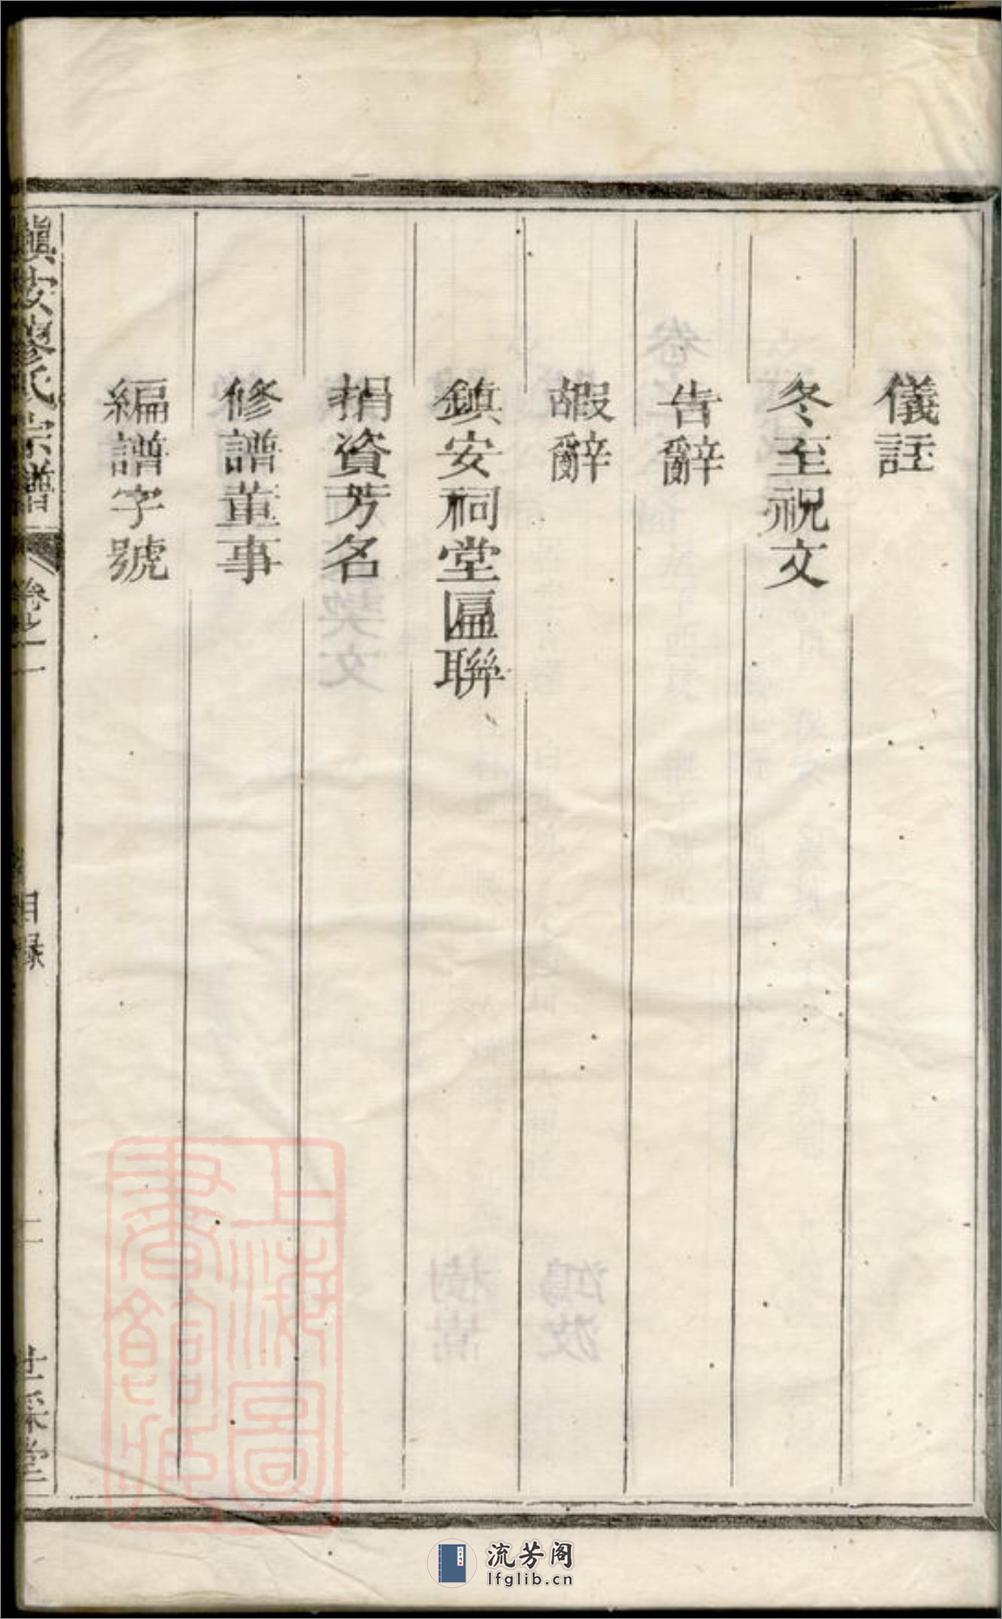 儀註
冬至祝文
告辭
嘏辭
鎮安祠堂匾聯
捐資芳名
修譜董事
編譜字號
鎮安廖氏宗譜
卷之一
目錄
二
世綵堂
上海圖書館藏
流芳阁
lfglib.cn